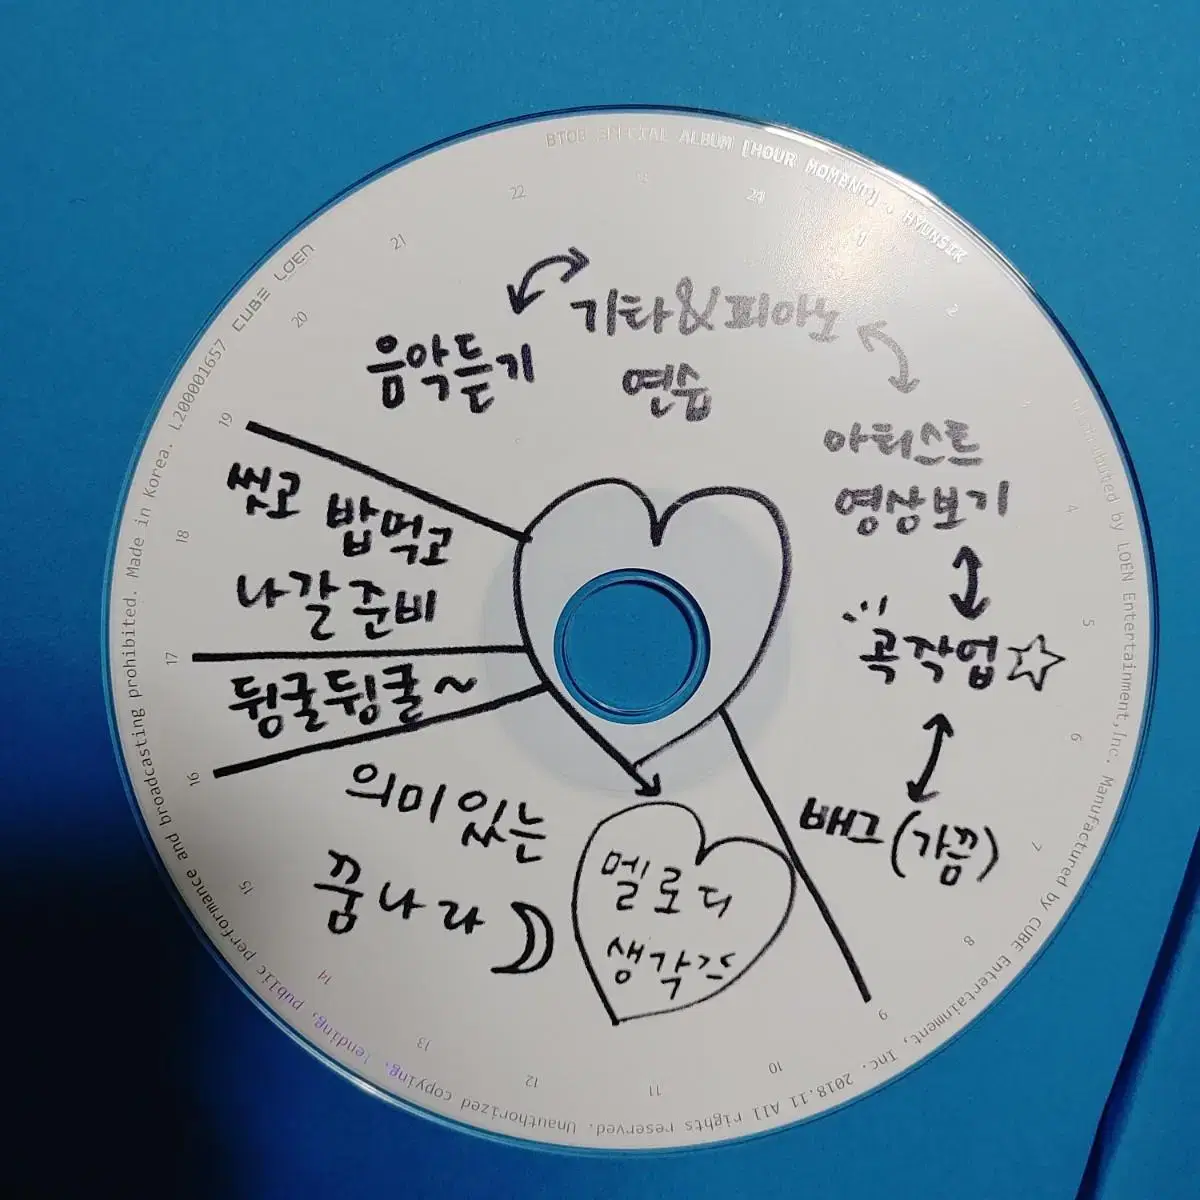 BTOB SPECIAL ALBUM [HOUR MOMENT] . HYUNSIK
Distributed by LOEN Entertainment,Inc. Manufactured by CUBE Entertainment, Inc. 2018.11 All rights reserved. Unauthorized copying, lending, public performance and broadcasting prohibited. Made in Korea. L200001657 CUBE LOEN
24
1
2
3
4
5
6
7
8
9
10
11
12
13
14
15
16
17
18
19
20
21
22
기타&피아노
연습
음악듣기
아티스트
영상보기
곡작업
배그(가끔)
씻고 밥먹고
나갈준비
뒹굴뒹굴~
의미있는
꿈나라
멜로디
생각